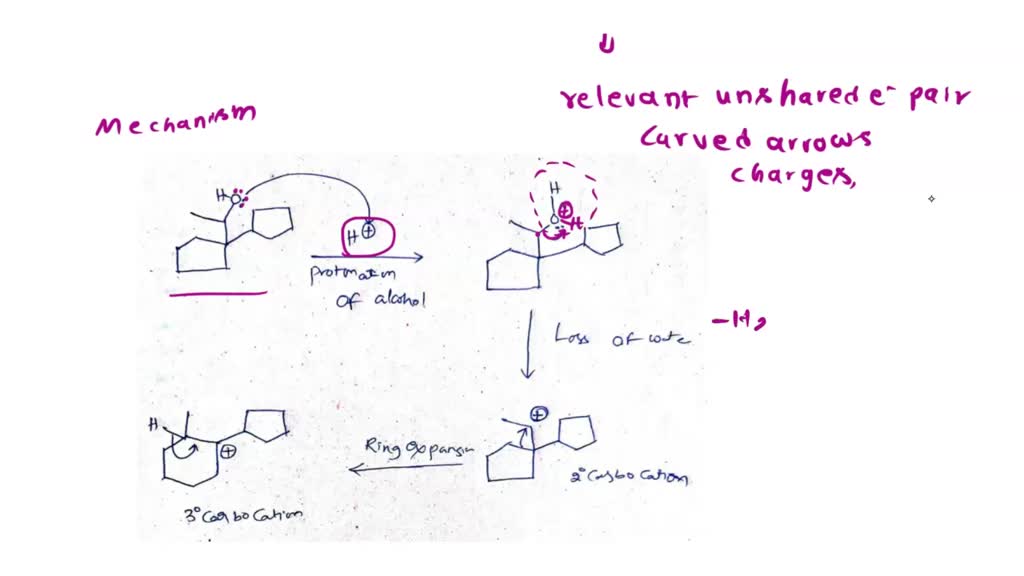 Mechanism
relevant unshared e- pair
curved arrows
charges,
H O
H ⊕
protonation
of alcohol
H
O ⊕ H
Loss of wate
-H,
H
⊕
Ring expansin
⊕
2° Carbo Cation
3° Carbo Cation